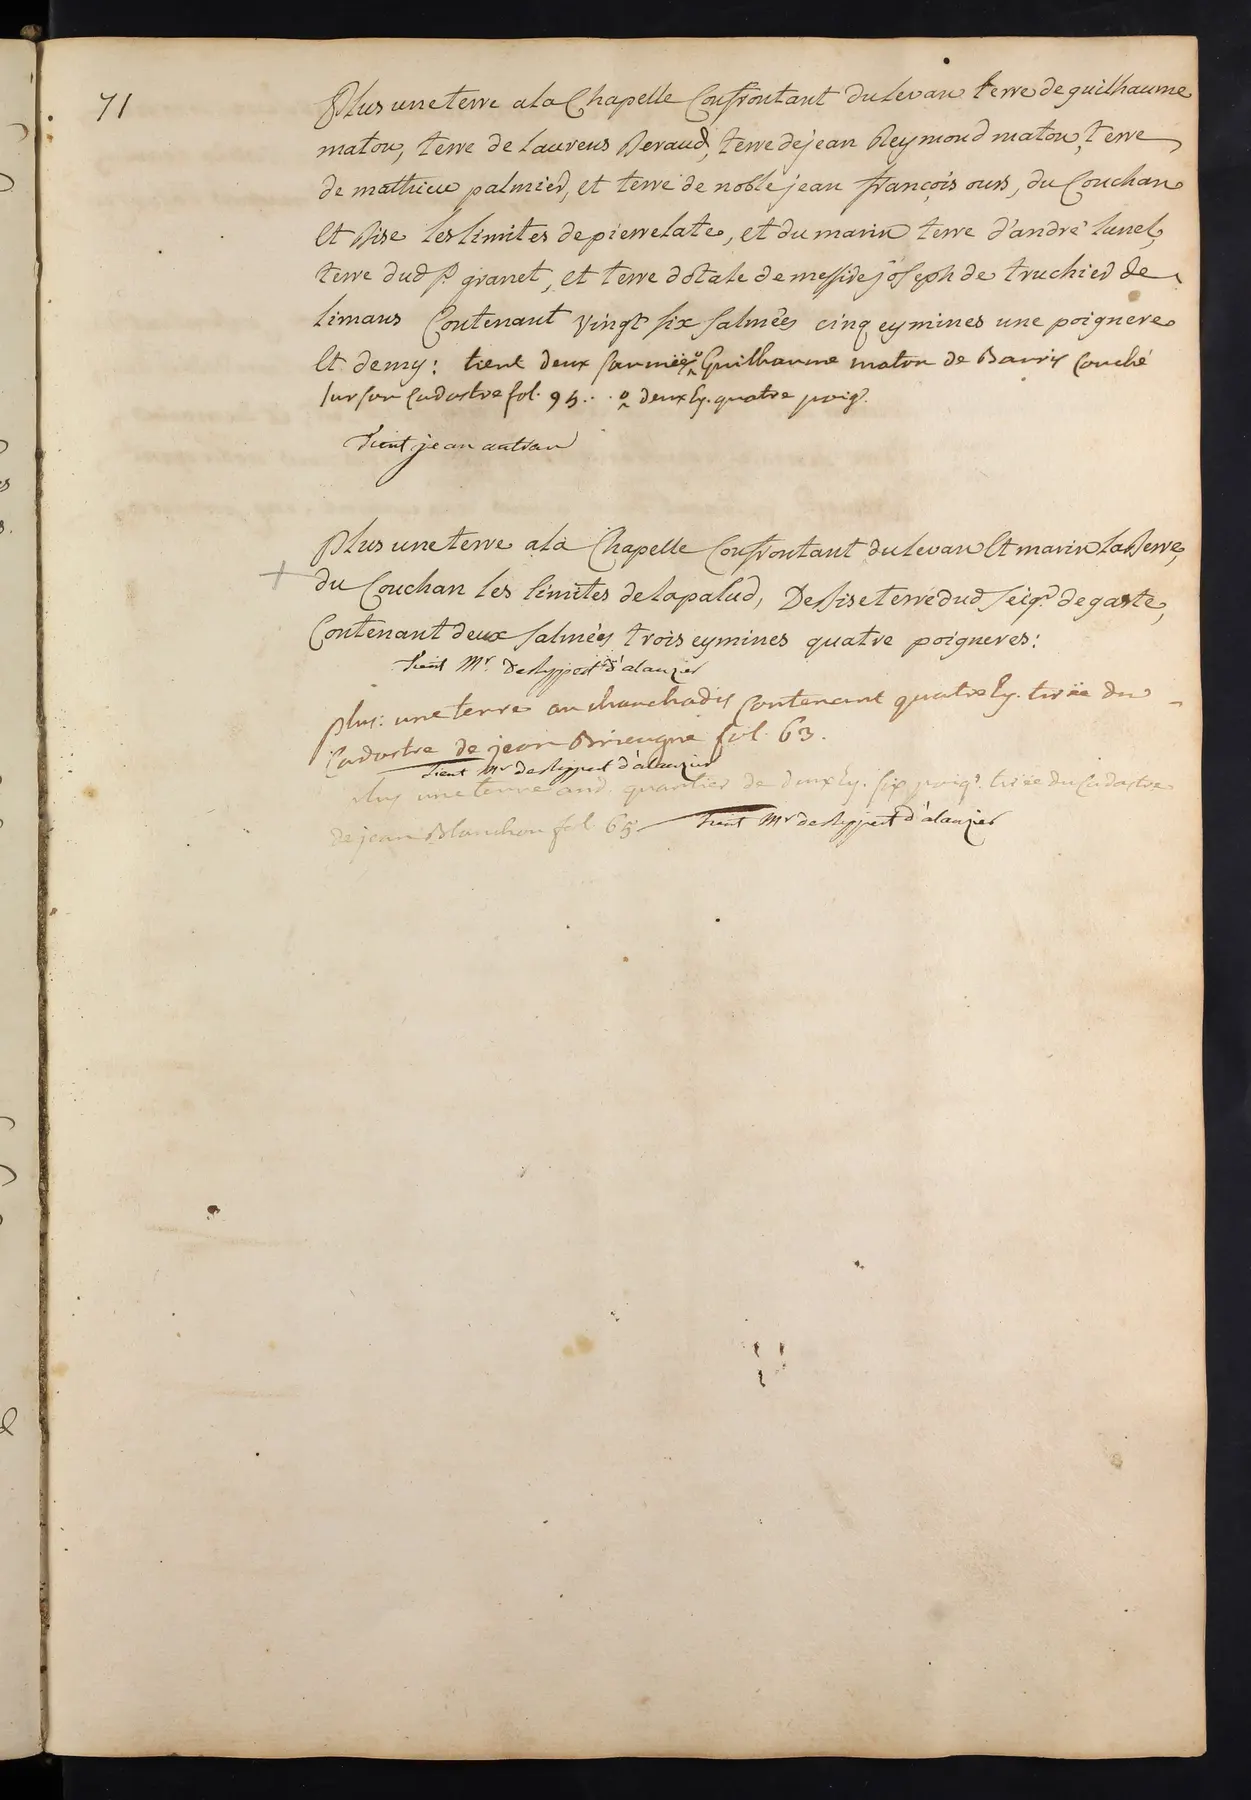 71
Plus une terre a la Chapelle Confrontant du levan terre de guilhaume
maton, terre de laurens Beraud, terre de jean Reymond maton, terre
de mathieu palmier, et terre de noble jean françois ours, du Couchan
Et Bise les limites de pierrelate, et du marin terre d'andré lunel,
terre dud Sr. granet, et terre dotale de messire joseph de truchier de
limans Contenant vingt six salmées cinq eymines une poignere
Et demy: tient deux saumées Guilhaume maton de Barry Couché
sur son Cadastre fol. 95.. deux Ey. quatre poig.
tient jean autran
Plus une terre a la Chapelle Confrontant du levan Et marin la Berre,
+ du Couchan les limites de lapalud, De Bise terre dud seigr. de gaste,
Contenant deux salmées trois eymines quatre poigneres:
tient Mr. De Rippert d'alauzier
plus: une terre au Contenant quatre Ey. tirée du
Cadastre de jean fol. 63.
tient Mr de Rippert d'alauzier
plus une terre aud. quartier de deux Ey. six poigr. tirée du Cadastre
de jean Blanchon fol. 65 tient Mr de Rippert d'alauzier